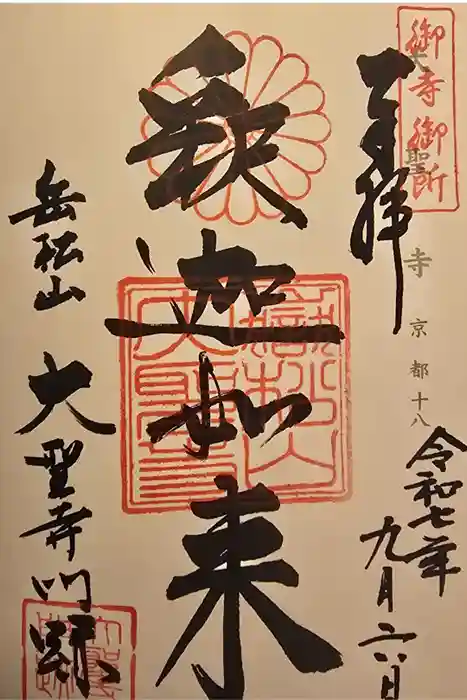 御寺御所
奉拝
大聖寺 京都十八
令和七年
九月二六日
釈迦如来
岳松山
大聖寺門跡